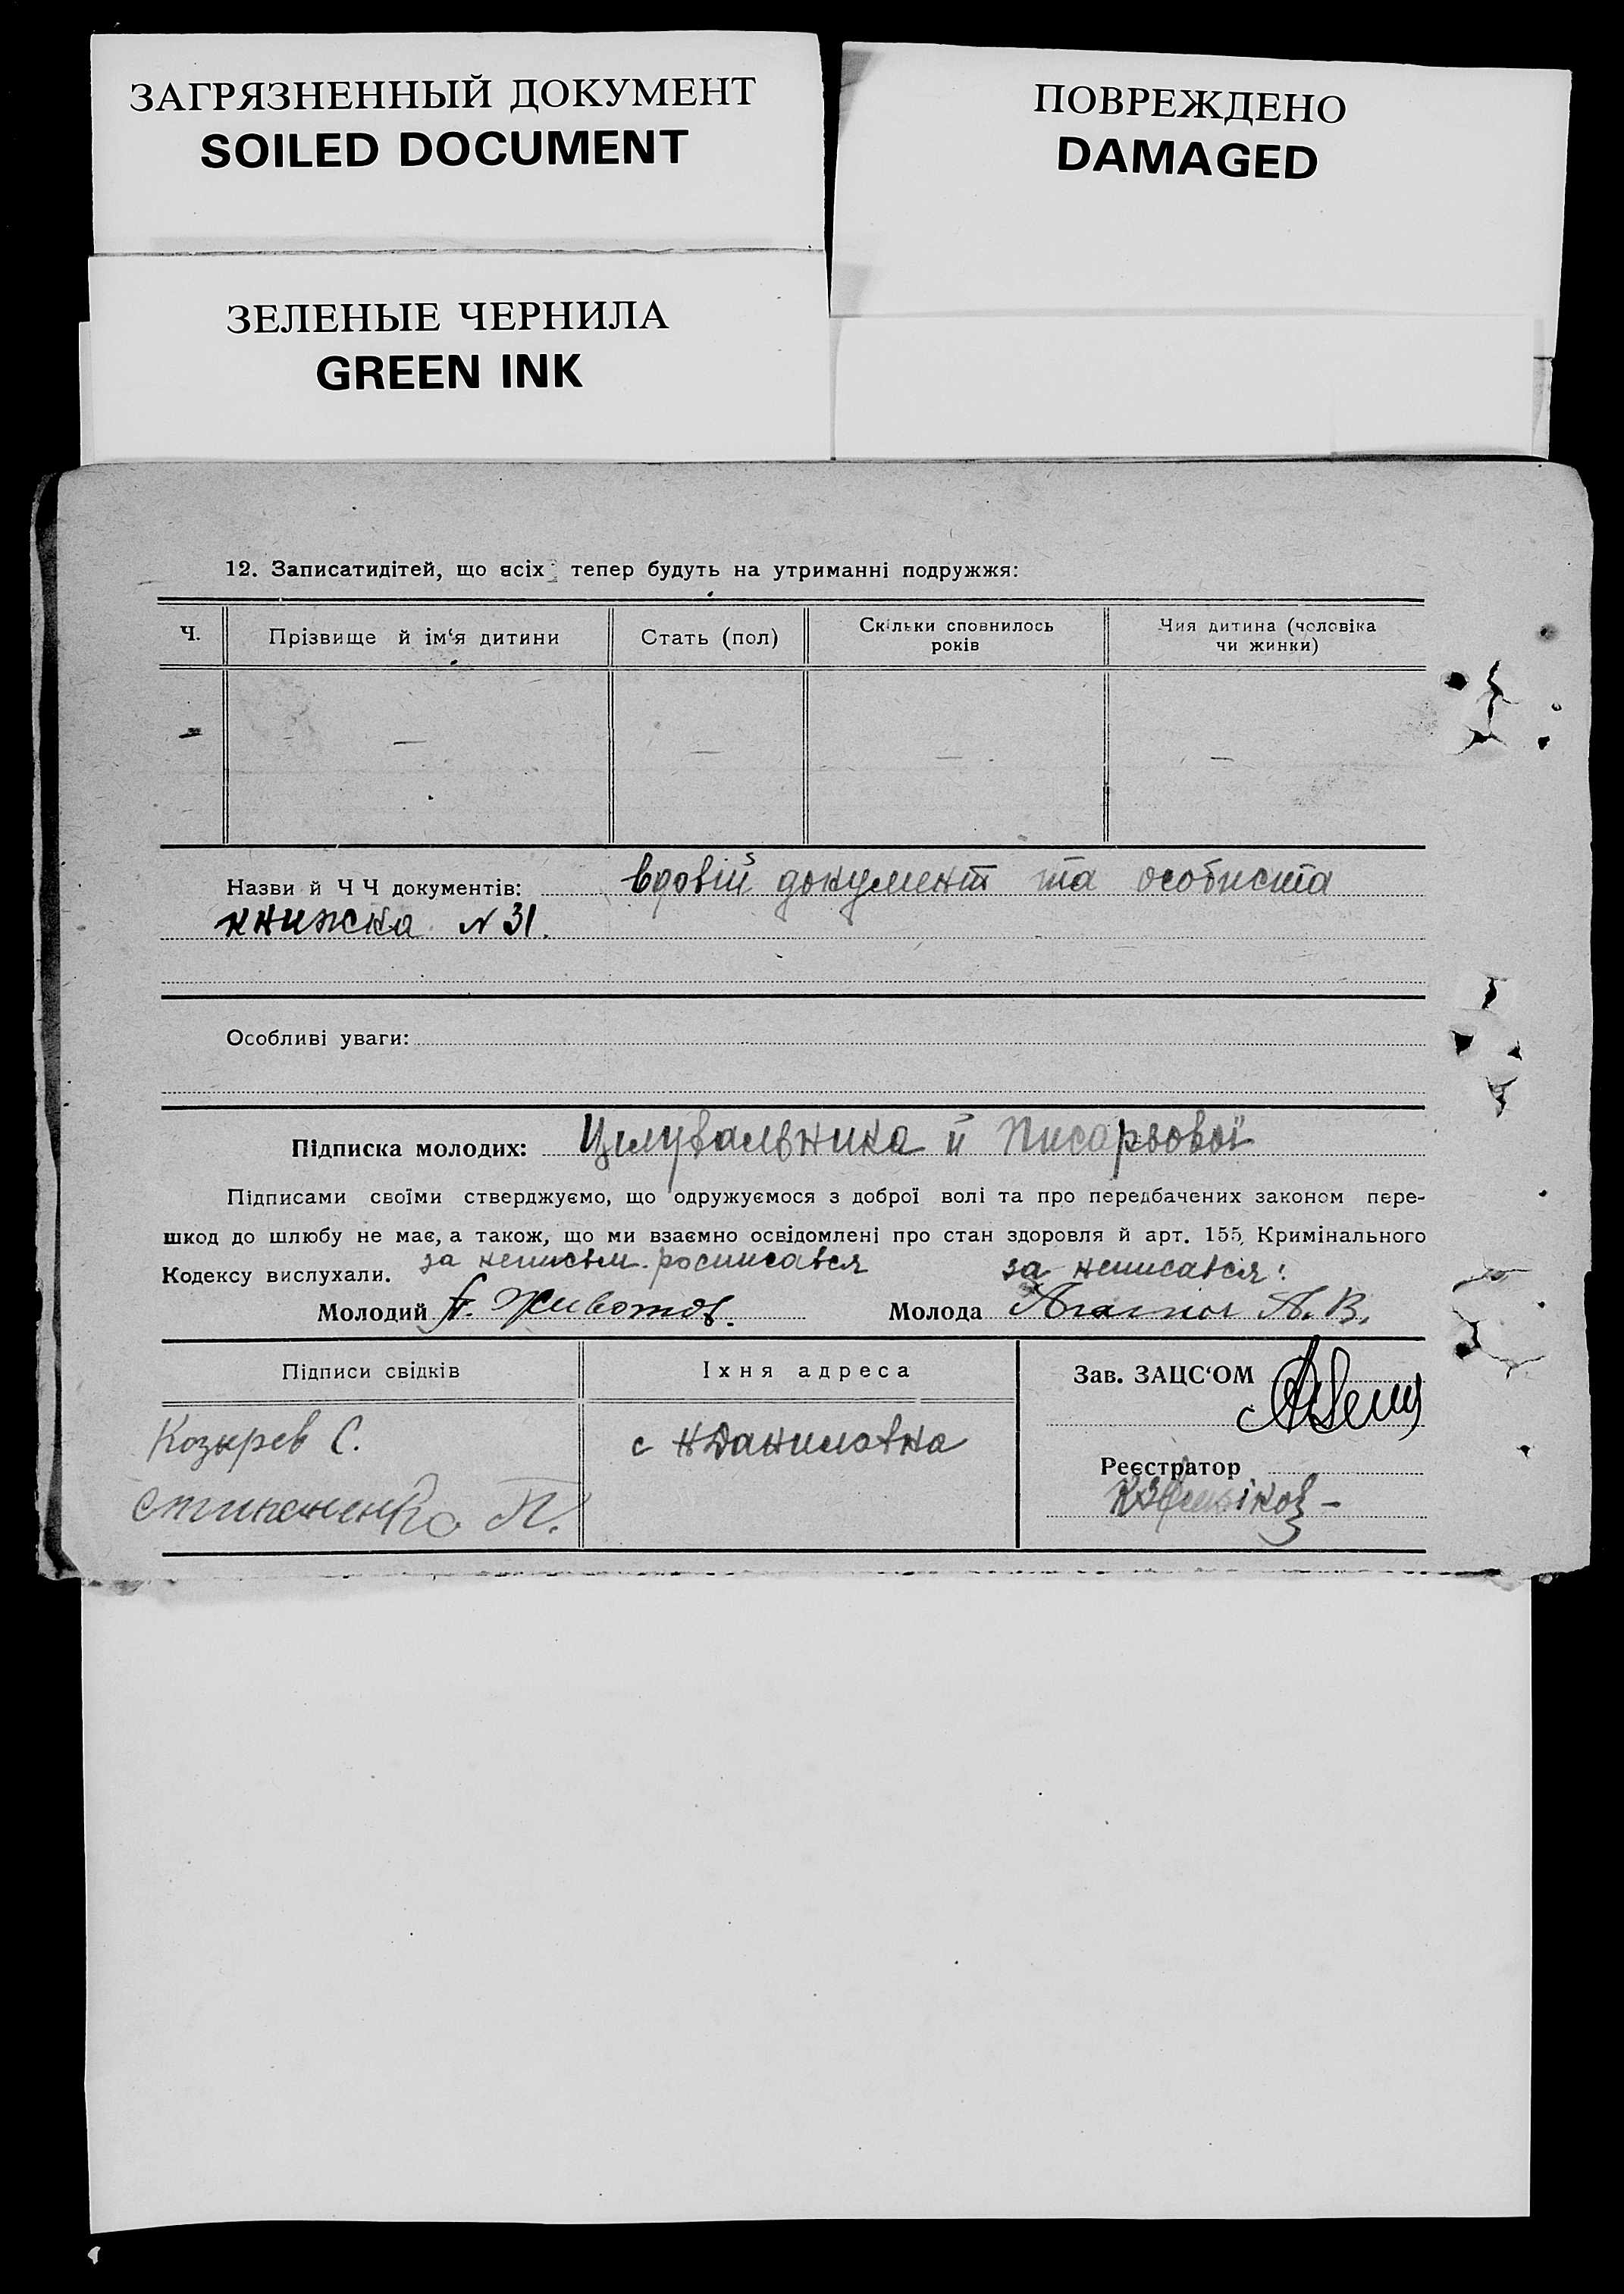 ЗАГРЯЗНЕННЫЙ ДОКУМЕНТ
SOILED DOCUMENT
ПОВРЕЖДЕНО
DAMAGED
ЗЕЛЕНЫЕ ЧЕРНИЛА
GREEN INK
12. Записатидітей, що всіх тепер будуть на утриманні подружжя:
Ч. Прізвище й ім'я дитини Стать (пол) Скільки сповнилось років Чия дитина (чоловіка чи жинки)
— — — — —
Назви й Ч Ч документів: вдовій документ та особиста
книжка N 31.
Особливі уваги:
Підписка молодих: Цілувальника й Писарьової
Підписами своїми стверджуємо, що одружуємося з доброї волі та про передбачених законом пере-
шкод до шлюбу не має, а також, що ми взаємно освідомлені про стан здоровля й арт. 155, Кримінального
Кодексу вислухали. за неписьм. росписався за неписався:
Молодий Животов. Молода А. В.
Підписи свідків Їхня адреса Зав. ЗАЦС'ОМ
Козырев С. с НДаниловка
Реєстратор
П.